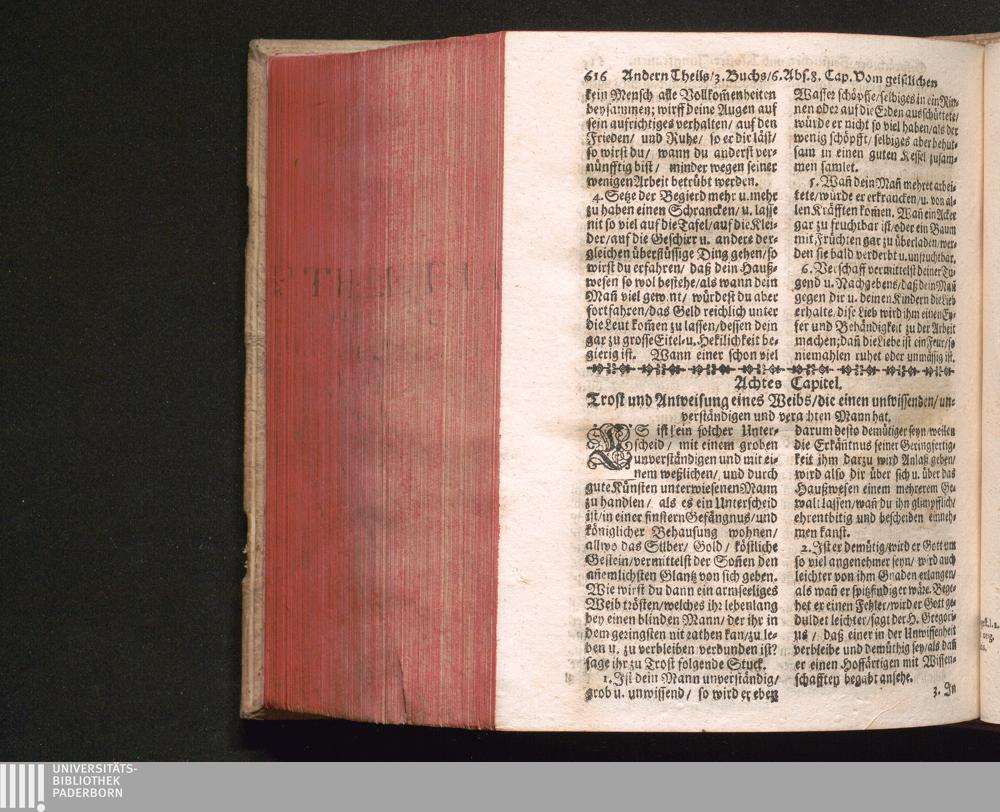 616 Andern Theils/3. Buchs/6. Abs. 8. Cap. Vom geistlichen
kein Mensch alle Vollkom̃enheiten
beysammen; wirff deine Augen auf
sein aufrichtiges verhalten/ auf den
Frieden/ und Ruhe/ so er dir läst/
so wirst du/ wann du anderst ver-
nünfftig bist/ minder wegen seiner
wenigen Arbeit betrübt werden.
4. Setze der Begierd mehr u. mehr
zu haben einen Schrancken/ u. lasse
nit so viel auf die Tafel/ auf die Klei-
der/ auf die Geschirr u. anders der-
gleichen überflüssige Ding gehen/ so
wirst du erfahren/ daß dein Hauß-
wesen so wol bestehe/ als wann dein
Mañ viel gewint/ würdest du aber
fortfahren/ das Geld reichlich unter
die Leut kom̃en zu lassen/ dessen dein
gar zu grosse Eitel- u. Heiklichkeit be-
gierig ist. Wann einer schon viel
Wasser schöpffe/ selbiges in ein Rin-
nen oder auf die Erden ausschüttete/
würde er nicht so viel haben/ als der
wenig schöpfft/ selbiges aber behut-
sam in einen guten Kessel zusam-
men samlet.
5. Wañ dein Mañ mehret arbei-
tete/ würde er erkrancken/ u. von al-
len Kräfften kom̃en. Wañ ein Acker
gar zu fruchtbar ist/ oder ein Baum
mit Früchten gar zu überladen/ wer-
den sie bald verderbt u. unfruchtbar.
6. Verschaff vermittelst deiner Tu-
gend u. Nachgebens/ daß dein Mañ
gegen dir u. deinen Kindern die Lieb
erhalte/ dise Lieb wird ihm einen Ey-
fer und Behändigkeit zu der Arbeit
machen; dañ die Liebe ist ein Feur/ so
niemahlen ruhet oder unmässig ist.
Achtes Capitel.
Trost und Antweisung eines Weibs/ die einen unwissenden/ un-
verständigen und verachten Mann hat.
ES ist ein solcher Unter-
scheid/ mit einem groben
unverständigen und mit ei-
nem weßlichen/ und durch
gute Künsten unterwiesenen Mann
zu handlen/ als es ein Unterscheid
ist/ in einer finstern Gefängnus/ und
königlicher Behausung wohnen/
allwo das Silber/ Gold/ köstliche
Gestein/ vermittelst der Soñen den
añemlichsten Glantz von sich geben.
Wie wirst du dann ein armseeliges
Weib trösten/ welches ihr lebenlang
bey einen blinden Mann/ der ihr in
dem geringsten nit rathen kan/ zu le-
ben u. zu verbleiben verbunden ist?
sage ihr zu Trost folgende Stuck.
1. Ist dein Mann unverständig/
grob u. unwissend/ so wird er eben
darum desto demütiger seyn/ weilen
die Erkäñtnus seiner Geringfertig-
keit ihm darzu wird Anlaß geben/
wird also dir über sich u. über das
Haußwesen einem mehrerem Ge-
walt lassen/ wañ du ihn glimpfflich/
ehrentbitig und bescheiden einneh-
men kanst.
2. Ist er demütig/ wird er Gott um
so viel angenehmer seyn/ wird auch
leichter von ihm Gnaden erlangen/
als wañ er spitzfindiger wäre. Bege-
het er einen Fehler/ wird er Gott ge-
duldet leichter/ sagt der H. Gregori-
us/ daß einer in der Unwissenheit
verbleibe und demüthig sey/ als daß
er einen Hoffärtigen mit Wissen-
schafften begabt ansehe.
3. In
UNIVERSITÄTS-
BIBLIOTHEK
PADERBORN